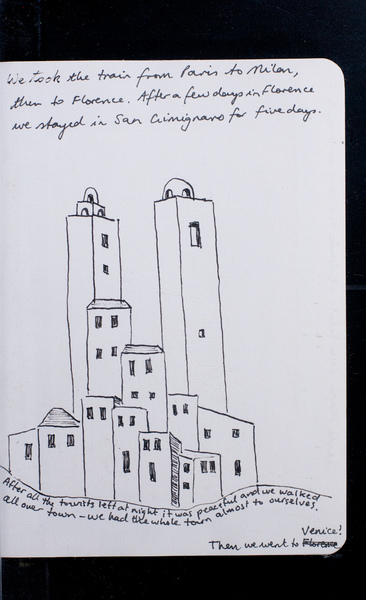 We took the train from Paris to Milan,
then to Florence. After a few days in Florence
we stayed in San Gimignano for five days.
After all the tourists left at night it was peaceful and we walked
all over town - we had the whole town almost to ourselves.
Venice!
Then we went to Florence